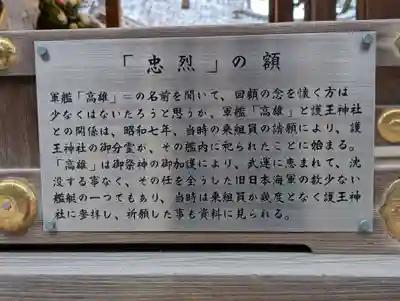 「忠烈」の額
軍艦「高雄」=の名前を聞いて、回顧の念を懐く方は
少なくはないだろうと思うが、軍艦「高雄」と護王神社
との関係は、昭和七年、当時の乗組員の請願により、護
王神社の御分霊が、その艦内に祀られたことに始まる。
「高雄」は御祭神の御加護により、武運に恵まれて、沈
没する事なく、その任を全うした旧日本海軍の数少ない
艦艇の一つでもあり、当時は乗組員が幾度となく護王神
社に参拝し、祈願した事も資料に見られる。